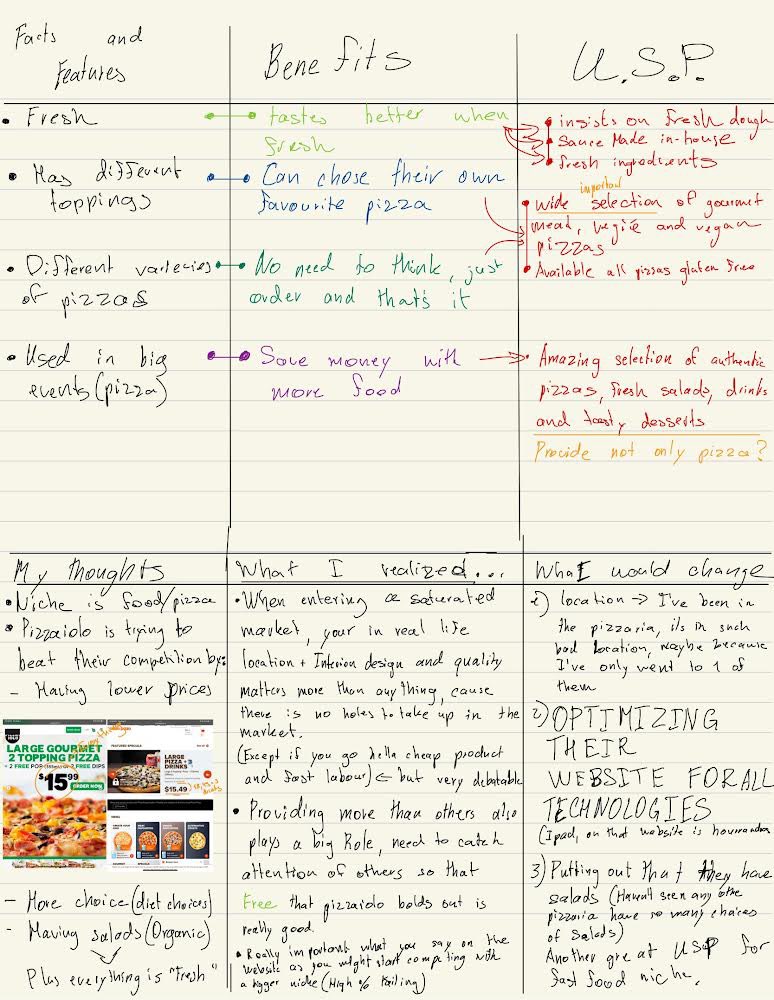 Facts and
Features
Benefits
U.S.P.
• Fresh
tastes better when
fresh
• insists on fresh dough
• Sauce Made in-house
• fresh ingredients
• Has different
toppings
Can chose their own
favourite pizza
important
• wide selection of gourmet
meat, vegie and vegan
pizzas
• Available all pizzas gluten free
• Different varieties
of pizzas
No need to think, just
order and that's it
• Used in big
events (pizza)
Save money with
more food
• Amazing selection of authentic
pizzas, fresh salads, drinks
and tasty desserts
Provide not only pizza?
My thoughts
• Niche is food/pizza
• Pizzaiolo is trying to
beat their competition by:
- Having lower prices
LARGE GOURMET
2 TOPPING PIZZA
+ 2 FREE POP + 2 FREE DIPS
$15.99
ORDER NOW
FEATURED SPECIALS
LARGE
PIZZA + 3
DRINKS
$15.49
- More choice (diet choices)
- Having salads (Organic)
Plus everything is "fresh"
What I realized...
• When entering a saturated
market, your in real life
location + Interior design and quality
matters more than anything, cause
there is no holes to take up in the
market.
(Except if you go hella cheap product
and fast labour) ← but very debatable
• Providing more than others also
plays a big Role, need to catch
attention of others so that
Free that pizzaiolo bolds out is
really good.
• Really important what you say on the
website as you might start competing with
a bigger niche (High % failing)
What I would change
1) location → I've been in
the pizzaria, its in such
bad location, maybe because
I've only went to 1 of
them
2) OPTIMIZING
THEIR
WEBSITE FOR ALL
TECHNOLOGIES
(Ipad, on that website is
3) Putting out that they have
salads (Haven't seen any othe
pizzaria have so many choices
of salads)
Another great USP for
fast food niche.